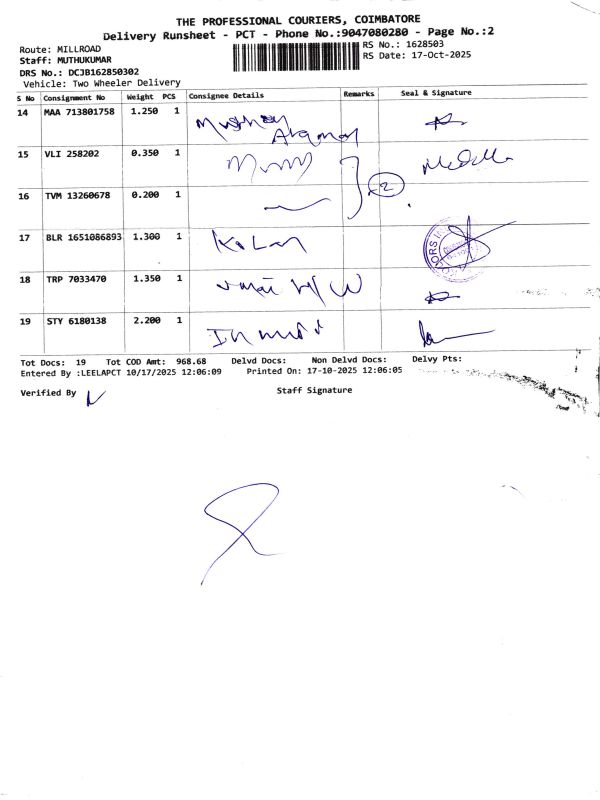 THE PROFESSIONAL COURIERS, COIMBATORE
Delivery Runsheet - PCT - Phone No.:9047080280 - Page No.:2
Route: MILLROAD
RS No.: 1628503
Staff: MUTHUKUMAR
RS Date: 17-Oct-2025
DRS No.: DCJB162850302
Vehicle: Two Wheeler Delivery
S No Consignment No Weight PCS Consignee Details Remarks Seal & Signature
14 MAA 713801758 1.250 1
15 VLI 258202 0.350 1
2
16 TVM 13260678 0.200 1
17 BLR 1651086893 1.300 1
18 TRP 7033470 1.350 1
19 STY 6180138 2.200 1
Tot Docs: 19 Tot COD Amt: 968.68 Delvd Docs: Non Delvd Docs: Delvy Pts:
Entered By :LEELAPCT 10/17/2025 12:06:09 Printed On: 17-10-2025 12:06:05
Verified By Staff Signature